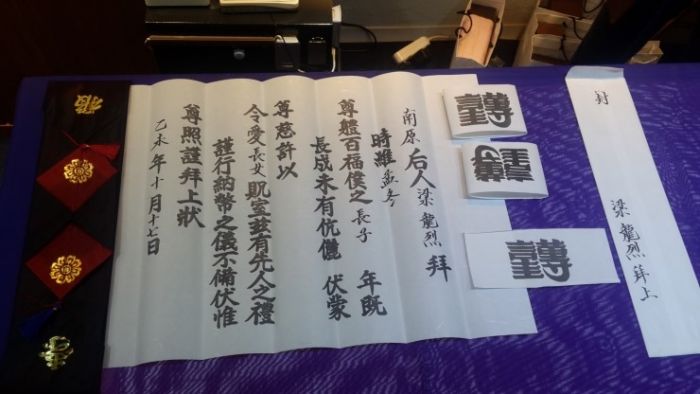 封
梁龍烈拜上
南原后人梁龍烈 拜
時維孟冬
尊體百福僕之長子 年既
長成未有伉儷 伏蒙
尊慈許以
令愛長女 貺室玆有先人之禮
謹行納幣之儀不備伏惟
尊照謹拜上狀
乙未年十月十七日